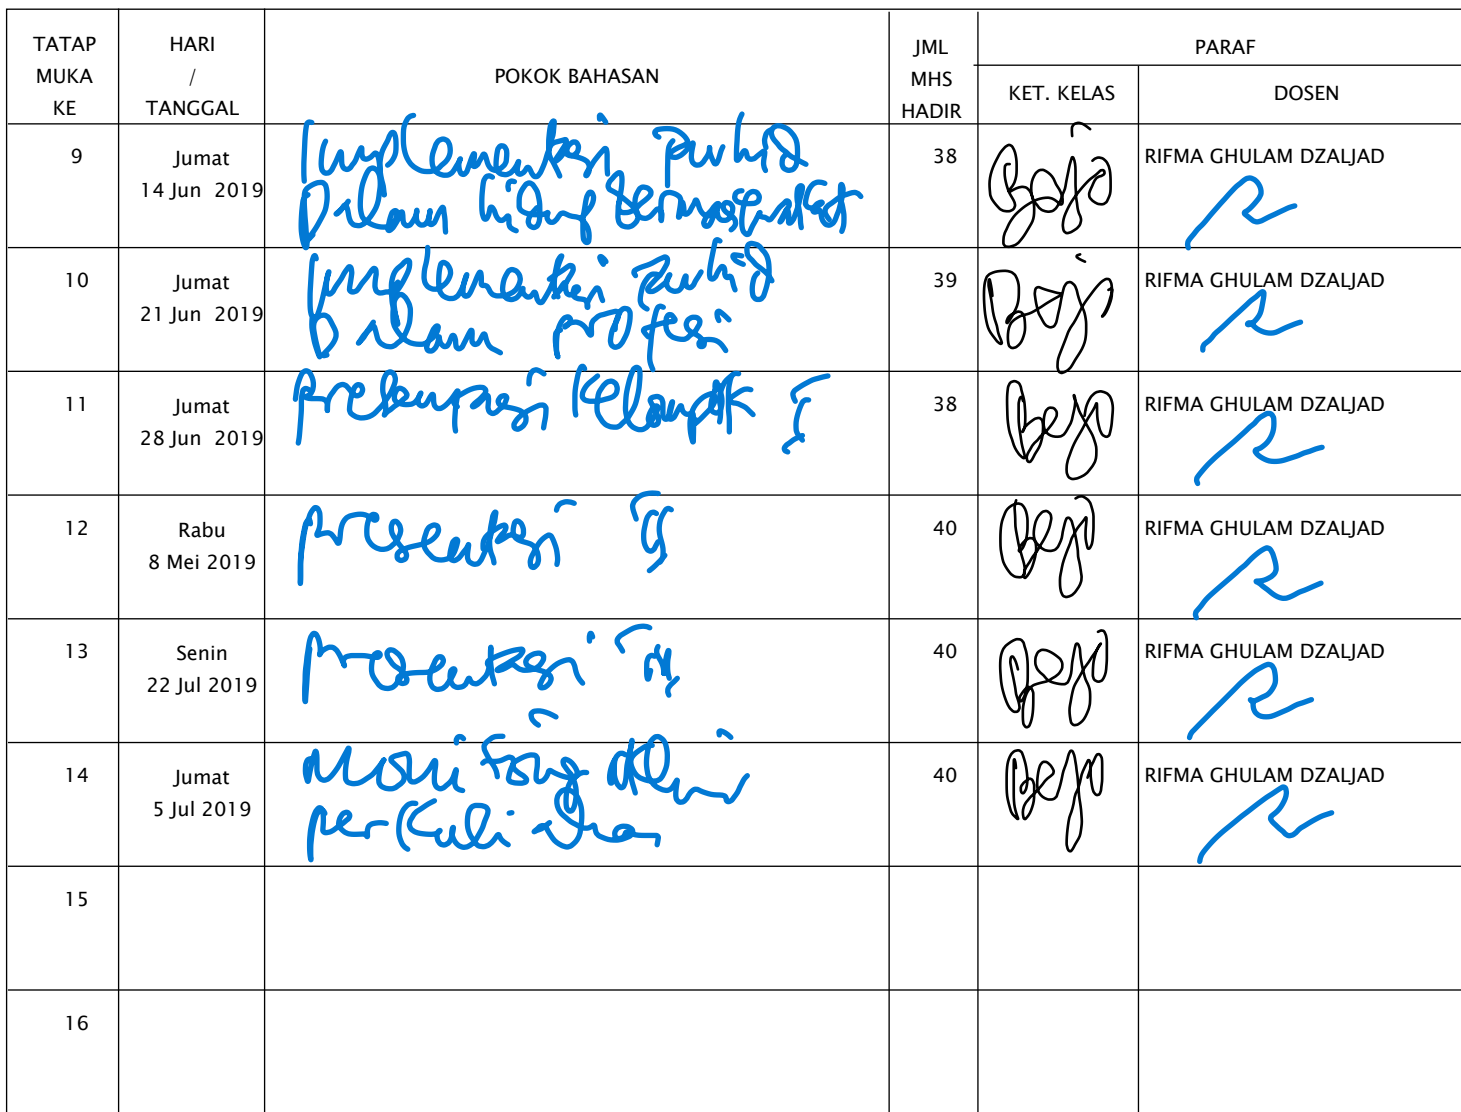 TATAP MUKA KE
HARI / TANGGAL
POKOK BAHASAN
JML MHS HADIR
PARAF
KET. KELAS
DOSEN
9
Jumat
14 Jun 2019
Implementasi Tauhid
Dalam hidup bermasyarakat
38
Bejo
RIFMA GHULAM DZALJAD
10
Jumat
21 Jun 2019
Implementasi Tauhid
Dalam profesi
39
Bejo
RIFMA GHULAM DZALJAD
11
Jumat
28 Jun 2019
Kelompok I
38
Bejo
RIFMA GHULAM DZALJAD
12
Rabu
8 Mei 2019
presentasi II
40
Bejo
RIFMA GHULAM DZALJAD
13
Senin
22 Jul 2019
presentasi III
40
Bejo
RIFMA GHULAM DZALJAD
14
Jumat
5 Jul 2019
Monitoring akhir
perkuliahan
40
Bejo
RIFMA GHULAM DZALJAD
15
16